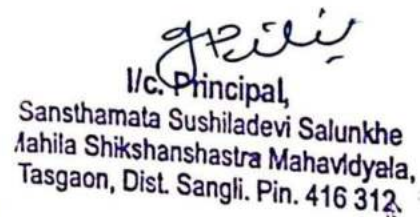 I/c. Principal,
Sansthamata Sushiladevi Salunkhe
Mahila Shikshanshastra Mahavidyala,
Tasgaon, Dist. Sangli. Pin. 416 312